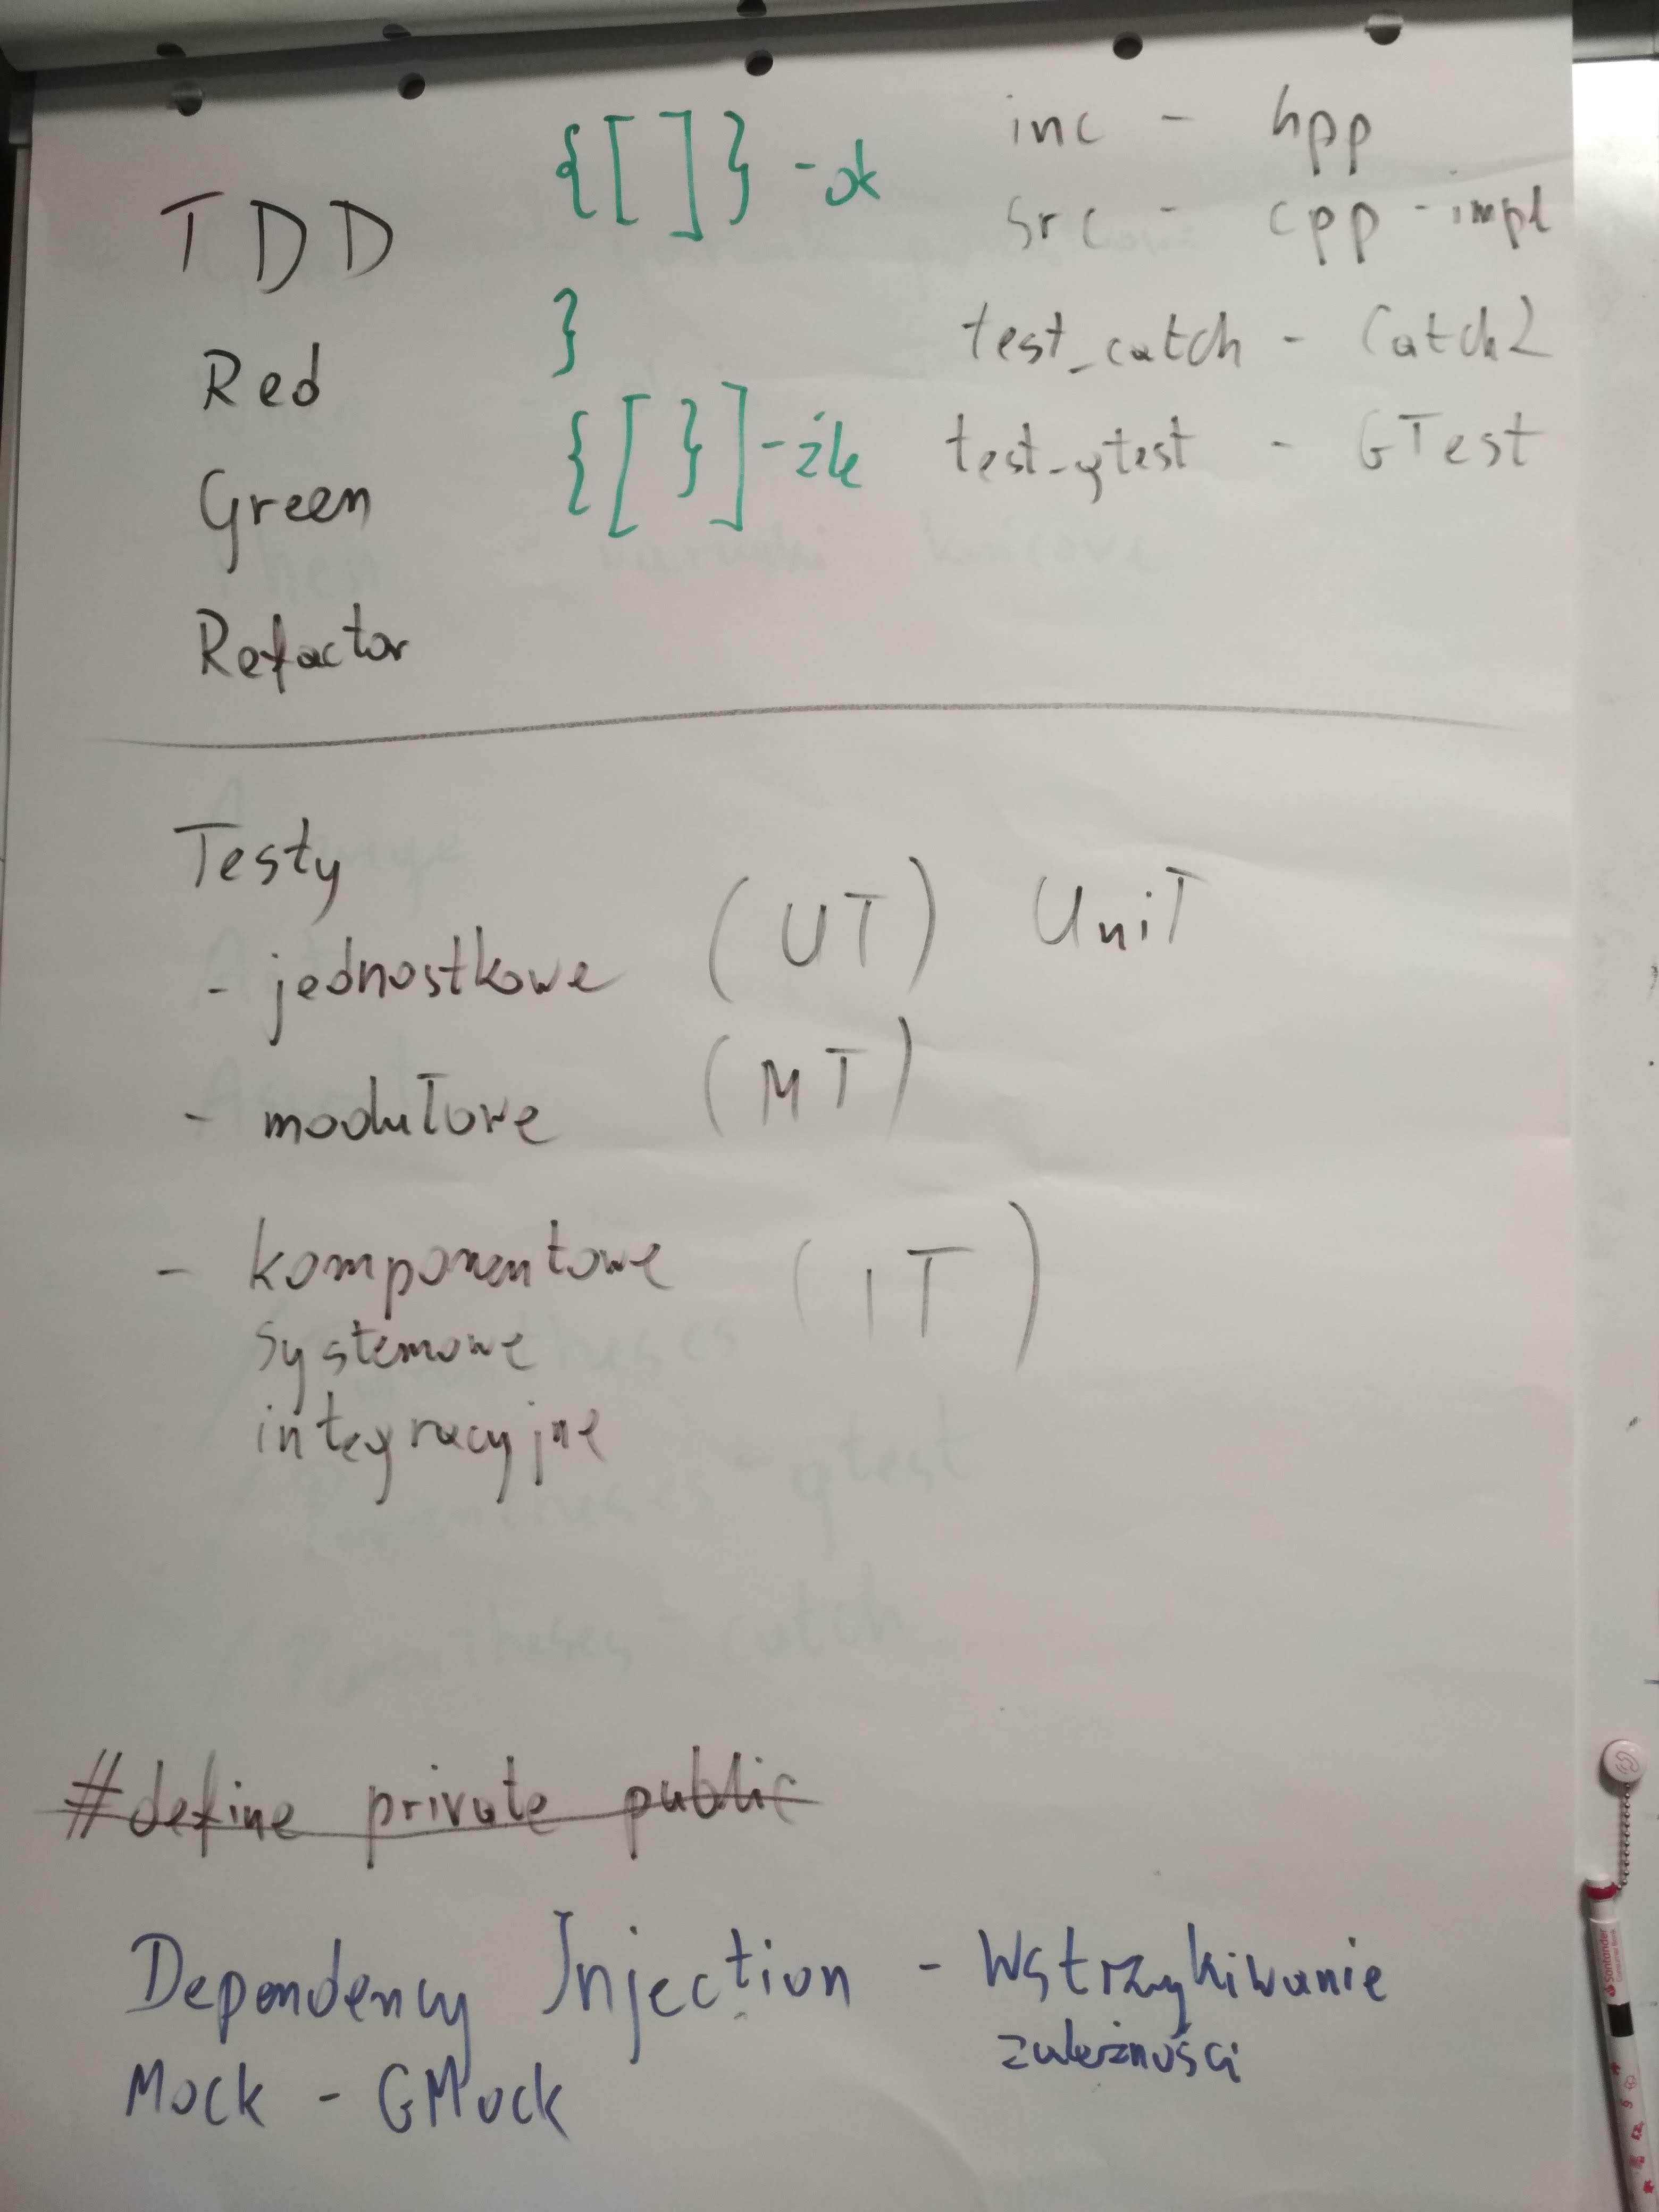 TDD
Red
Green
Refactor
{[]} - ok
}
{[}] - źle
inc - hpp
src - cpp - impl
test_catch - Catch2
test_gtest - GTest
Testy
- jednostkowe (UT) UniT
- modułowe (MT)
- komponentowe (IT)
systemowe
integracyjne
#define private public
Dependency Injection - Wstrzykiwanie
zależności
Mock - GMock
Santander